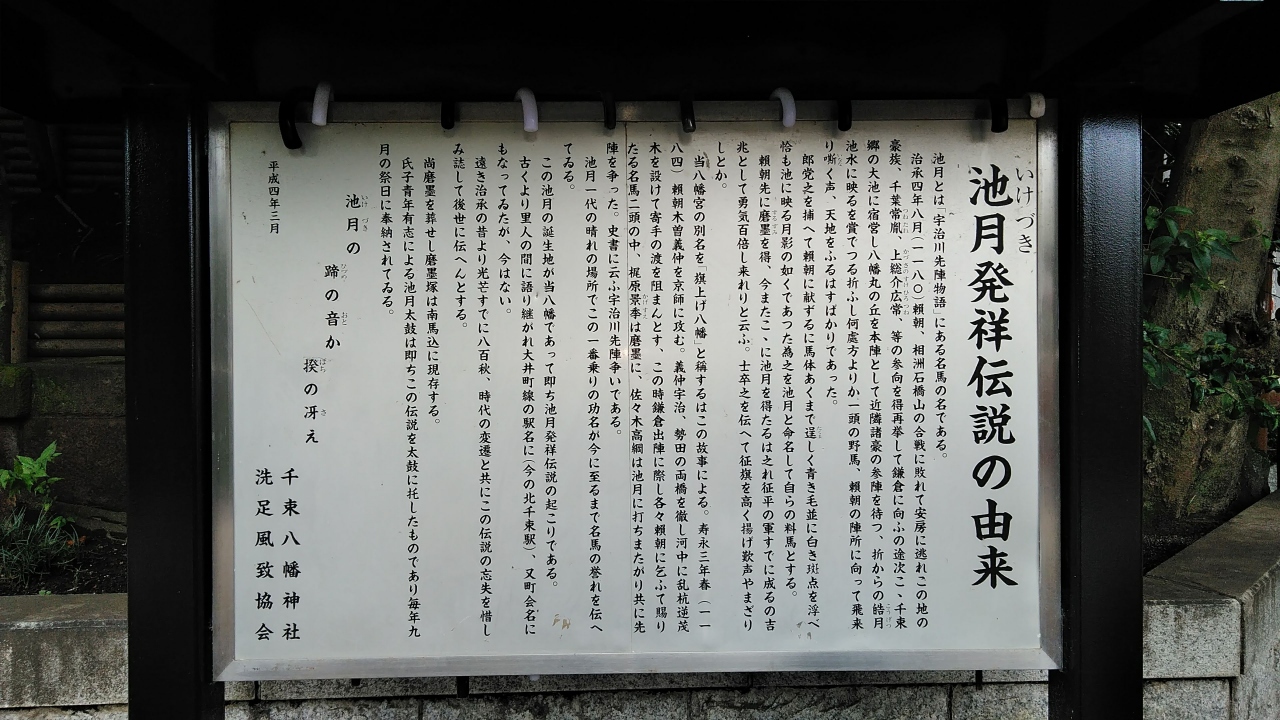 いけづき
池月発祥伝説の由来
池月とは「宇治川先陣物語」にある名馬の名である。
治承四年八月(一一八〇)頼朝、相洲石橋山の合戦に敗れて安房に逃れこの地の
豪族、千葉常胤、上総介広常、等の参向を得再挙して鎌倉に向ふの途次こゝ千束
郷の大池に宿営し八幡丸の丘を本陣として近隣諸豪の参陣を待つ、折からの皓月
池水に映るを賞でつる折ふし何處方よりか一頭の野馬、頼朝の陣所に向って飛来
り嘶く声、天地をふるはすばかりであった。
郎党之を捕へて頼朝に献ずるに馬体あくまで逞しく青き毛並に白き斑点を浮べ
恰も池に映る月影の如くであつた為之を池月と命名して自らの料馬とする。
頼朝先に磨墨を得、今またこゝに池月を得たるは之れ征平の軍すでに成るの吉
兆として勇気百倍し来れりと云ふ。士卒之を伝へて征旗を高く揚げ歓声やまざり
しとか。
当八幡宮の別名を「旗上げ八幡」と稱するはこの故事による。寿永三年春(一一
八四)頼朝木曽義仲を京師に攻む。義仲宇治、勢田の両橋を徹し河中に乱杭逆茂
木を設けて寄手の渡を阻まんとす、この時鎌倉出陣に際し各々頼朝に乞ふて賜り
たる名馬二頭の中、梶原景季は磨墨に、佐々木高綱は池月に打ちまたがり共に先
陣を争った。史書に云ふ宇治川先陣争いである。
池月一代の晴れの場所でこの一番乗りの功名が今に至るまで名馬の誉れを伝へ
てゐる。
この池月の誕生地が当八幡であって即ち池月発祥伝説の起こりである。
古くより里人の間に語り継がれ大井町線の駅名に(今の北千束駅)、又町会名に
もなってゐたが、今はない。
遠き治承の昔より光芒すでに八百秋、時代の変遷と共にこの伝説の忘失を惜し
み誌して後世に伝へんとする。
尚磨墨を葬せし磨墨塚は南馬込に現存する。
氏子青年有志による池月太鼓は即ちこの伝説を太鼓に托したものであり毎年九
月の祭日に奉納されてゐる。
池月の
蹄の音か
揆の冴え
平成四年三月
千束八幡神社
洗足風致協会